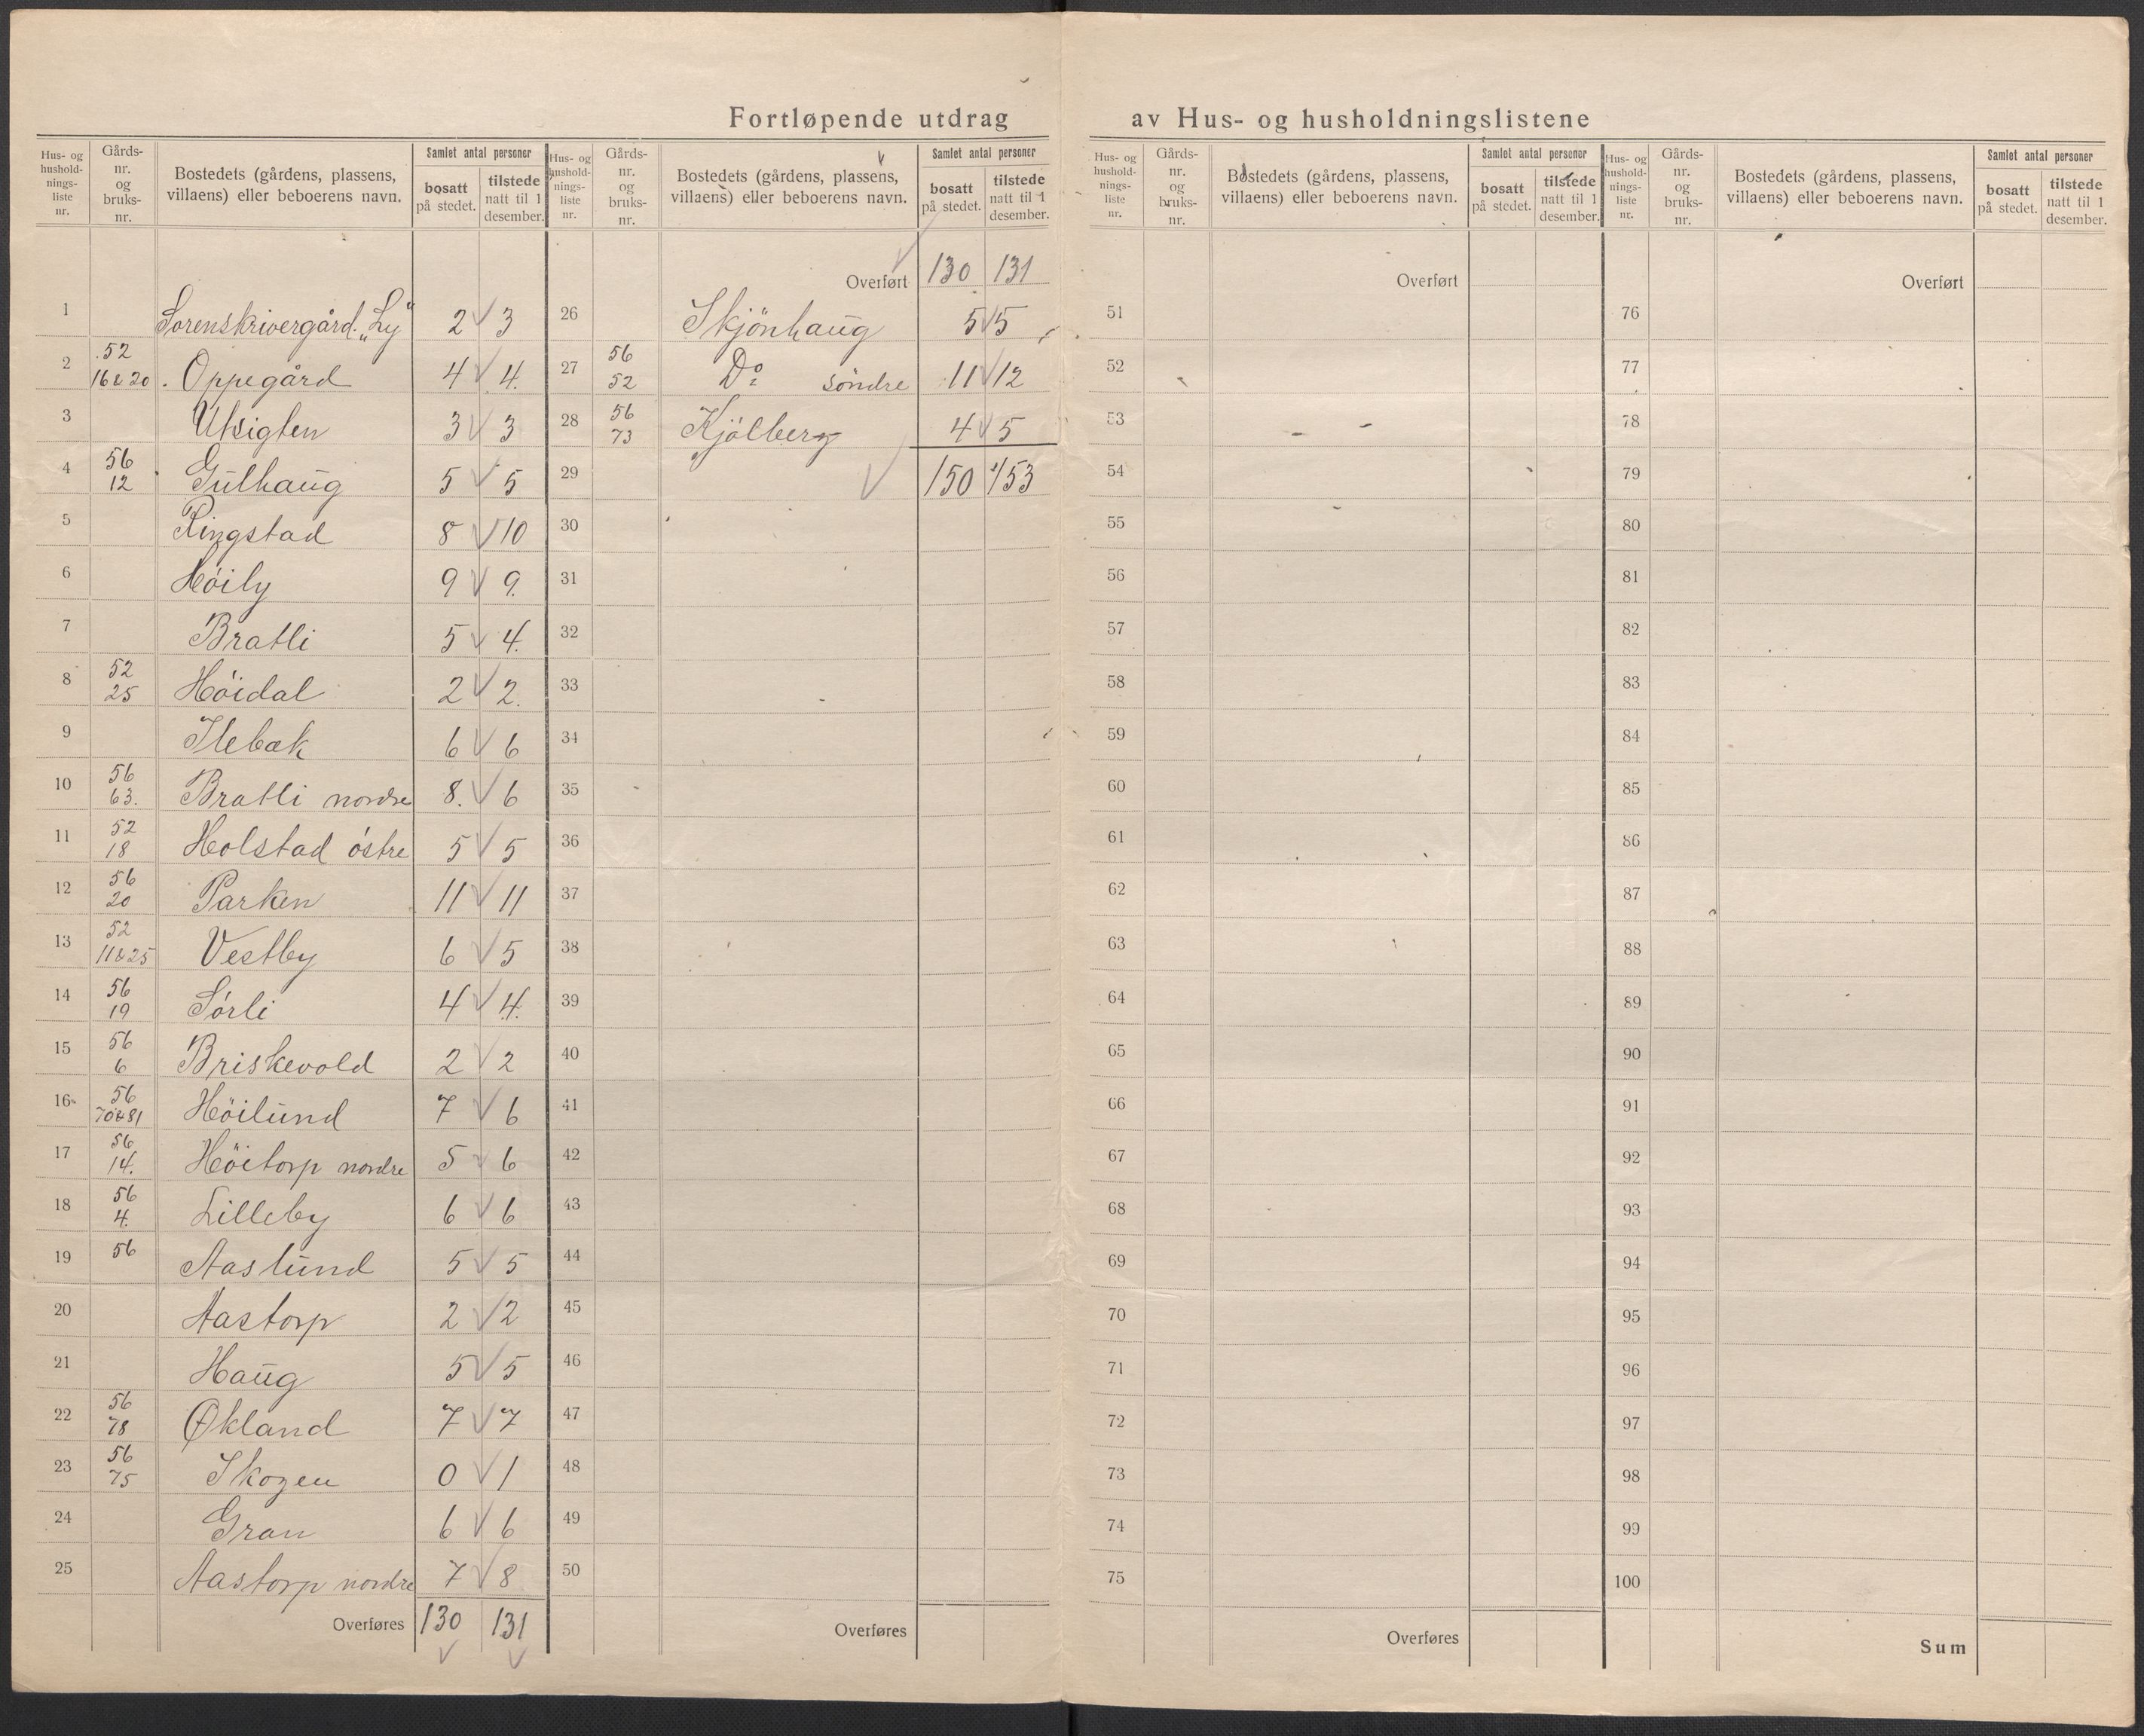 Fortløpende utdrag av Hus- og husholdningslistene
Hus- og hushold- nings- liste nr. | Gårds- nr. og bruks- nr. | Bostedets (gårdens, plassens, villaens) eller beboerens navn. | Samlet antal personer | bosatt på stedet. | tilstede natt til 1 desember.
1 Sorenskrivergård. „Ly“ 2 3
2 52 16 & 20 Oppegård 4 4
3 Utsigten 3 3
4 56 12 Gulhaug 5 5
5 Ringstad 8 10
6 Höily 9 9
7 Bratli 5 4
8 52 25 Höidal 2 2
9 Ilebæk 6 6
10 56 63 Bratli nordre 8 6
11 52 18 Holstad östre 5 5
12 56 20 Parken 11 11
13 52 11 & 25 Vestby 6 5
14 56 19 Sörli 4 4
15 56 6 Briskevold 2 2
16 56 70 & 81 Höilund 7 6
17 56 14 Höitorp nordre 5 6
18 56 4 Lilleby 6 6
19 56 Aaslund 5 5
20 Aastorp 2 2
21 Haug 5 5
22 56 78 Økland 7 7
23 56 75 Skogen 0 1
24 Gran 6 6
25 Aastorp nordre 7 8
Overføres 130 131
Hus- og hushold- nings- liste nr. | Gårds- nr. og bruks- nr. | Bostedets (gårdens, plassens, villaens) eller beboerens navn. | Samlet antal personer | bosatt på stedet. | tilstede natt til 1 desember.
Overført 130 131
26 Skjönhaug 5 5
27 56 52 Do söndre 11 12
28 56 73 Kjölberg 4 5
29 150 153
30
31
32
33
34
35
36
37
38
39
40
41
42
43
44
45
46
47
48
49
50
Overføres
Hus- og hushold- nings- liste nr. | Gårds- nr. og bruks- nr. | Bostedets (gårdens, plassens, villaens) eller beboerens navn. | Samlet antal personer | bosatt på stedet. | tilstede natt til 1 desember.
Overført
51
52
53
54
55
56
57
58
59
60
61
62
63
64
65
66
67
68
69
70
71
72
73
74
75
Overføres
Hus- og hushold- nings- liste nr. | Gårds- nr. og bruks- nr. | Bostedets (gårdens, plassens, villaens) eller beboerens navn. | Samlet antal personer | bosatt på stedet. | tilstede natt til 1 desember.
Overført
76
77
78
79
80
81
82
83
84
85
86
87
88
89
90
91
92
93
94
95
96
97
98
99
100
Sum